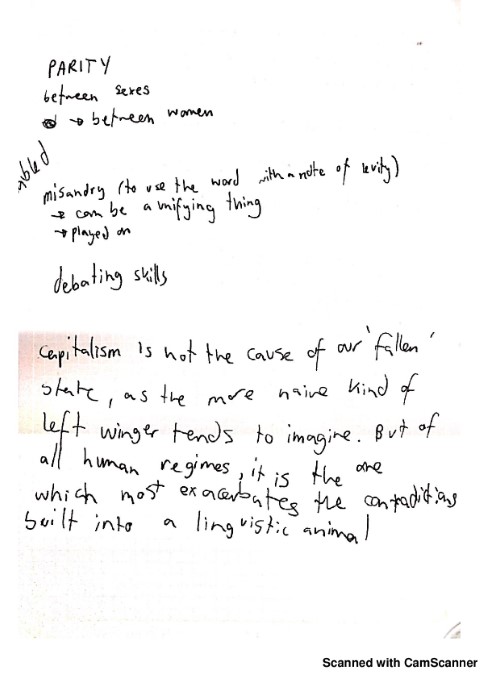 PARITY
between sexes
→ between women
misandry (to use the word with a note of levity)
→ can be a unifying thing
→ played on
debating skills
capitalism is not the cause of our 'fallen'
state, as the more naive kind of
left winger tends to imagine. But of
all human regimes, it is the one
which most exacerbates the contradictions
built into a linguistic animal
Scanned with CamScanner